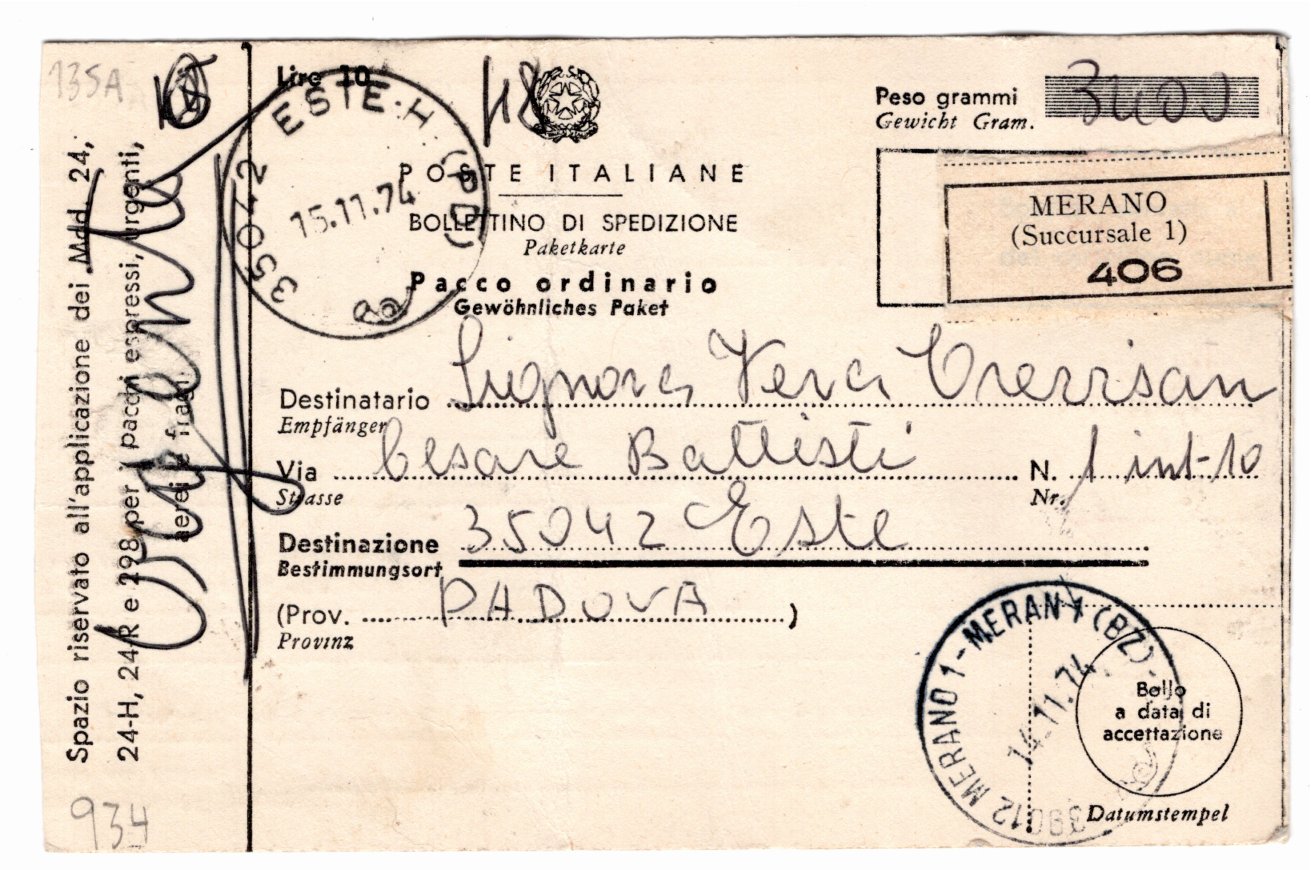 135A
Lire 10
48
Peso grammi 3400
Gewicht Gram.
35042 ESTE·H·(PD)
15.11.74
POSTE ITALIANE
BOLLETTINO DI SPEDIZIONE
Paketkarte
Pacco ordinario
Gewöhnliches Paket
MERANO
(Succursale 1)
406
Destinatario Signora Vera Trevisan
Empfänger
Via Cesare Battisti N. 1 int-10
Strasse Nr.
Destinazione 35042 Este
Bestimmungsort
(Prov. PADOVA)
Provinz
39012 MERANO 1 - MERAN 1 (BZ)
14.11.74
Bollo
a data di
accettazione
Datumstempel
Spazio riservato all'applicazione dei Mdd. 24,
24-H, 24-R e 298 per i pacchi espressi, urgenti,
aerei e fragili
Urgente
934